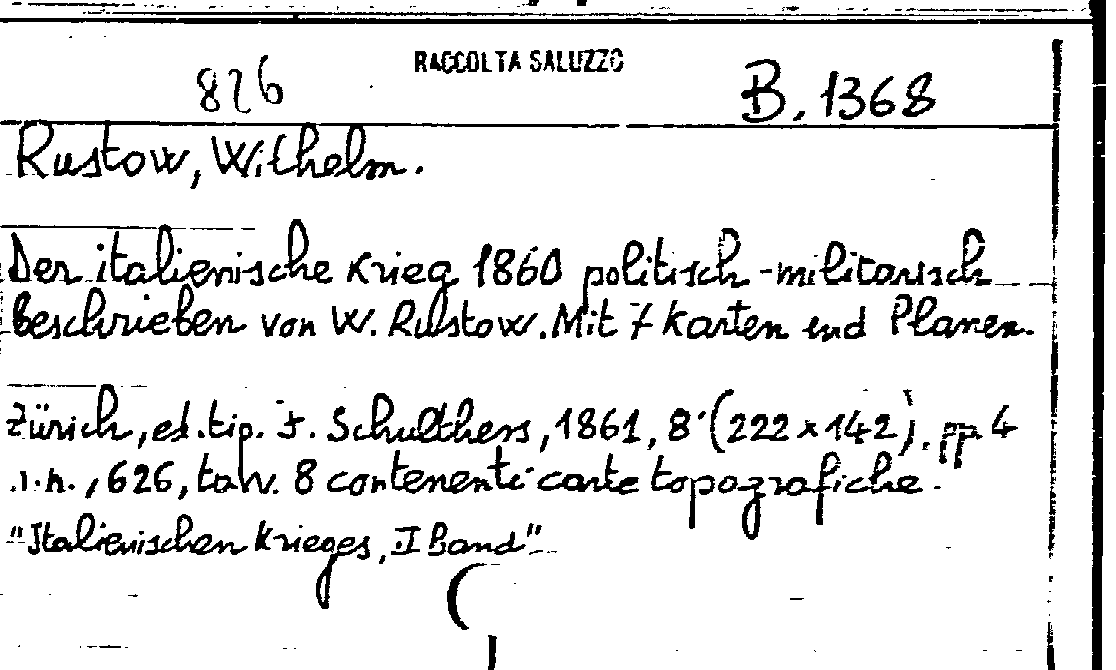 RACCOLTA SALUZZO
826 B. 1368
Rustow, Wilhelm.
Der italienische Krieg 1860 politisch-militarisch
beschrieben von W. Rustow. Mit 7 Karten und Planen.
Zürich, ed. tip. F. Schulthess, 1861, 8° (222 x 142), pp. 4
s.n., 626, tav. 8 contenenti carte topografiche.
"Italienischen Krieges, I Band"